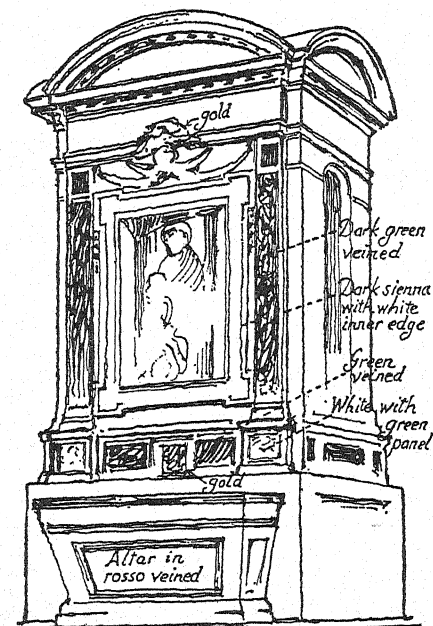 gold
Dark green
veined
Dark sienna
with white
inner edge
Green
veined
White with
green
panel
gold
Altar in
rosso veined